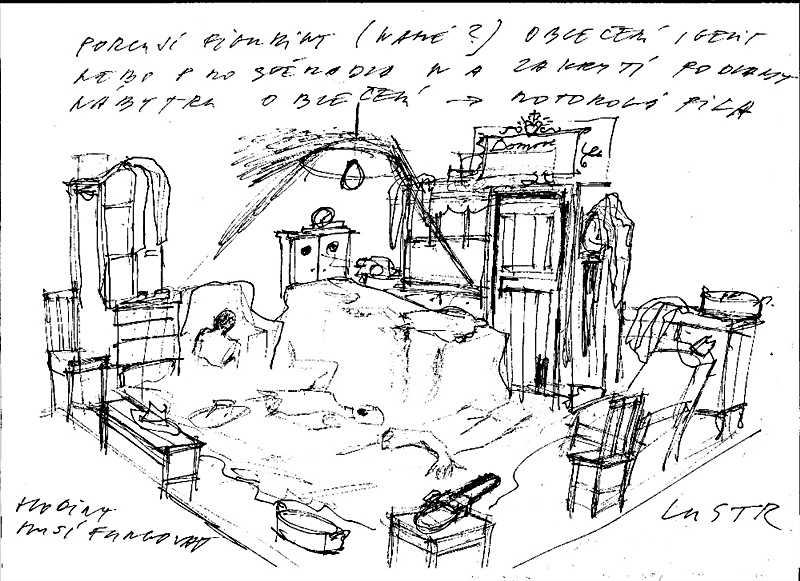 FIGURÍNY (NAHÉ?) OBLEČENÍ IGELIT
NEBO PROSTĚRADLA NA ZAKRYTÍ PODLAHY
NÁBYTEK OBLEČENÍ → MOTOROVÁ PILA
Domove
HODINY
MUSÍ FUNGOVAT
LUSTR